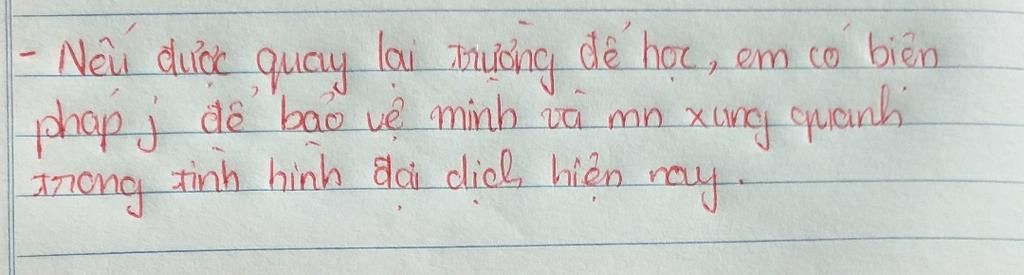 - Nếu được quay lại trường để học, em có biên
pháp j để bảo vệ mình và mn xung quanh
trong tình hình đại dịch hiện nay.